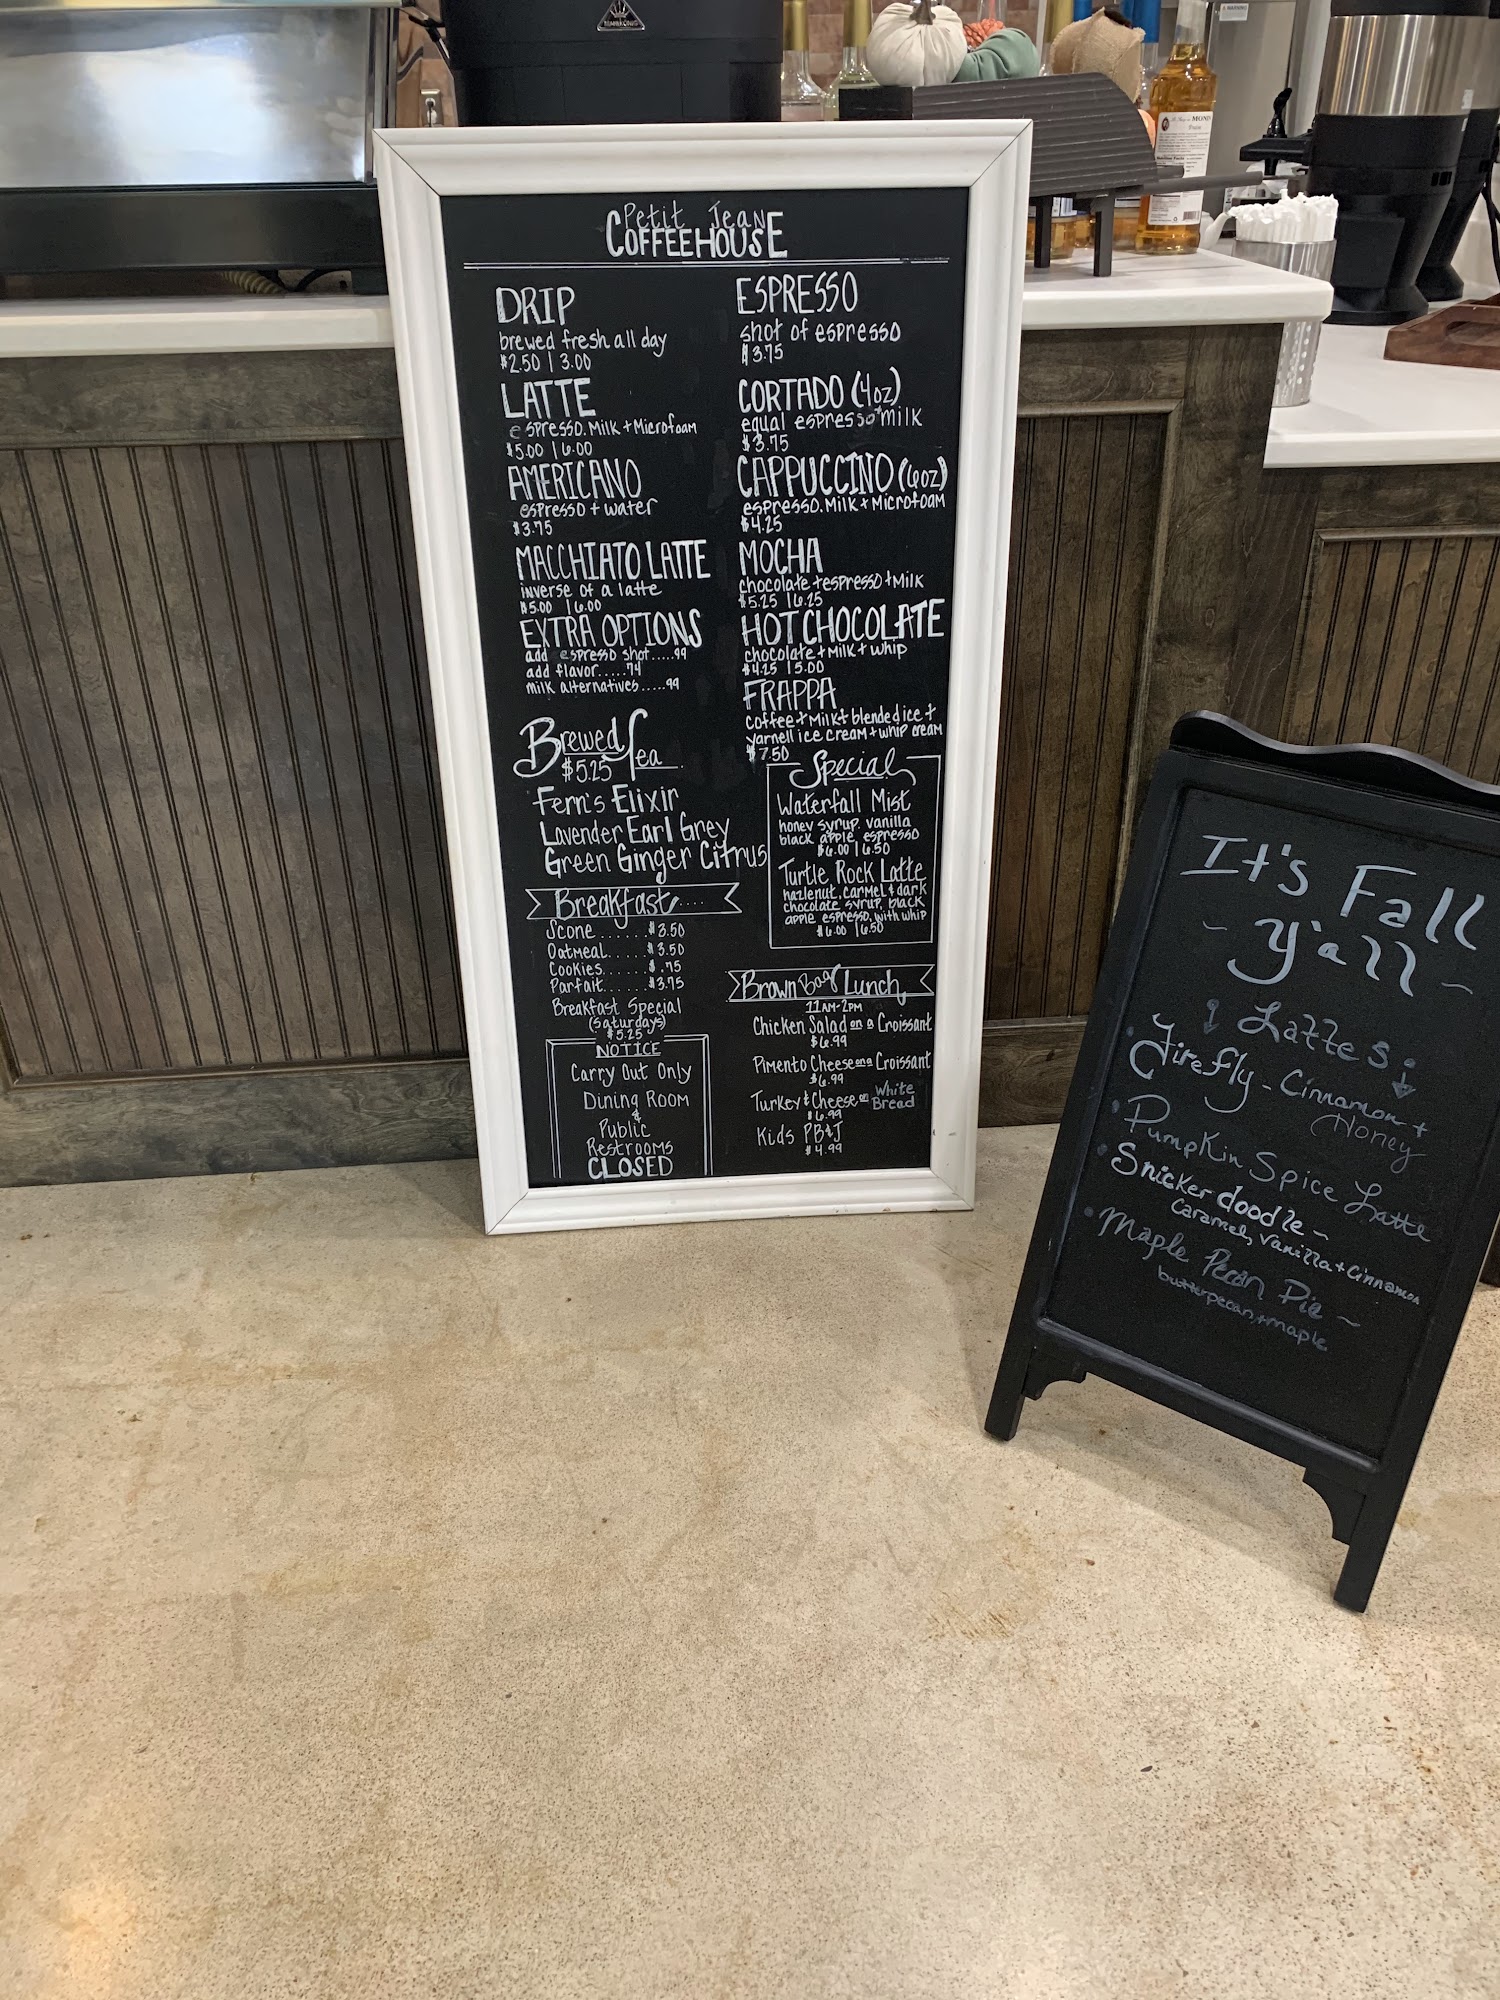 Petit Jean
COFFEEHOUSE
DRIP
brewed fresh all day
$2.50 | 3.00
LATTE
espresso. Milk + Microfoam
$5.00 | 6.00
AMERICANO
espresso + water
$3.75
MACCHIATO LATTE
inverse of a latte
$5.00 | 6.00
EXTRA OPTIONS
add espresso shot.....99
add flavor.....74
milk alternatives.....99
Brewed Tea
$5.25
Fern's Elixir
Lavender Earl Grey
Green Ginger Citrus
Breakfast....
Scone......$3.50
Oatmeal.....$3.50
Cookies.....$.75
Parfait.....$3.75
Breakfast Special
(Saturdays)
$5.25
NOTICE
Carry Out Only
Dining Room
&
Public
Restrooms
CLOSED
ESPRESSO
shot of espresso
$3.75
CORTADO (4oz)
equal espresso + milk
$3.75
CAPPUCCINO (6oz)
espresso. Milk + Microfoam
$4.25
MOCHA
chocolate + espresso + Milk
$5.25 | 6.25
HOT CHOCOLATE
chocolate + Milk + whip
$4.25 | 5.00
FRAPPA
coffee + Milk + blended ice +
yarnell ice cream + whip cream
$7.50
Special
Waterfall Mist
honey syrup. vanilla
black apple espresso
$6.00 | 6.50
Turtle Rock Latte
hazlenut, carmel & dark
chocolate syrup, black
apple espresso, with whip
$6.00 | 6.50
Brown Bag Lunch
11AM-2PM
Chicken Salad on a Croissant
$6.99
Pimento Cheese on a Croissant
$6.99
Turkey & Cheese on White Bread
$6.99
Kids PB&J
$4.99
It's Fall
~ Y'all ~
Lattes
• Firefly - Cinnamon +
Honey
• Pumpkin Spice Latte
• Snickerdoodle ~
Caramel, Vanilla + Cinnamon
• Maple Pecan Pie ~
butterpecan + maple
MONIN
WARNING